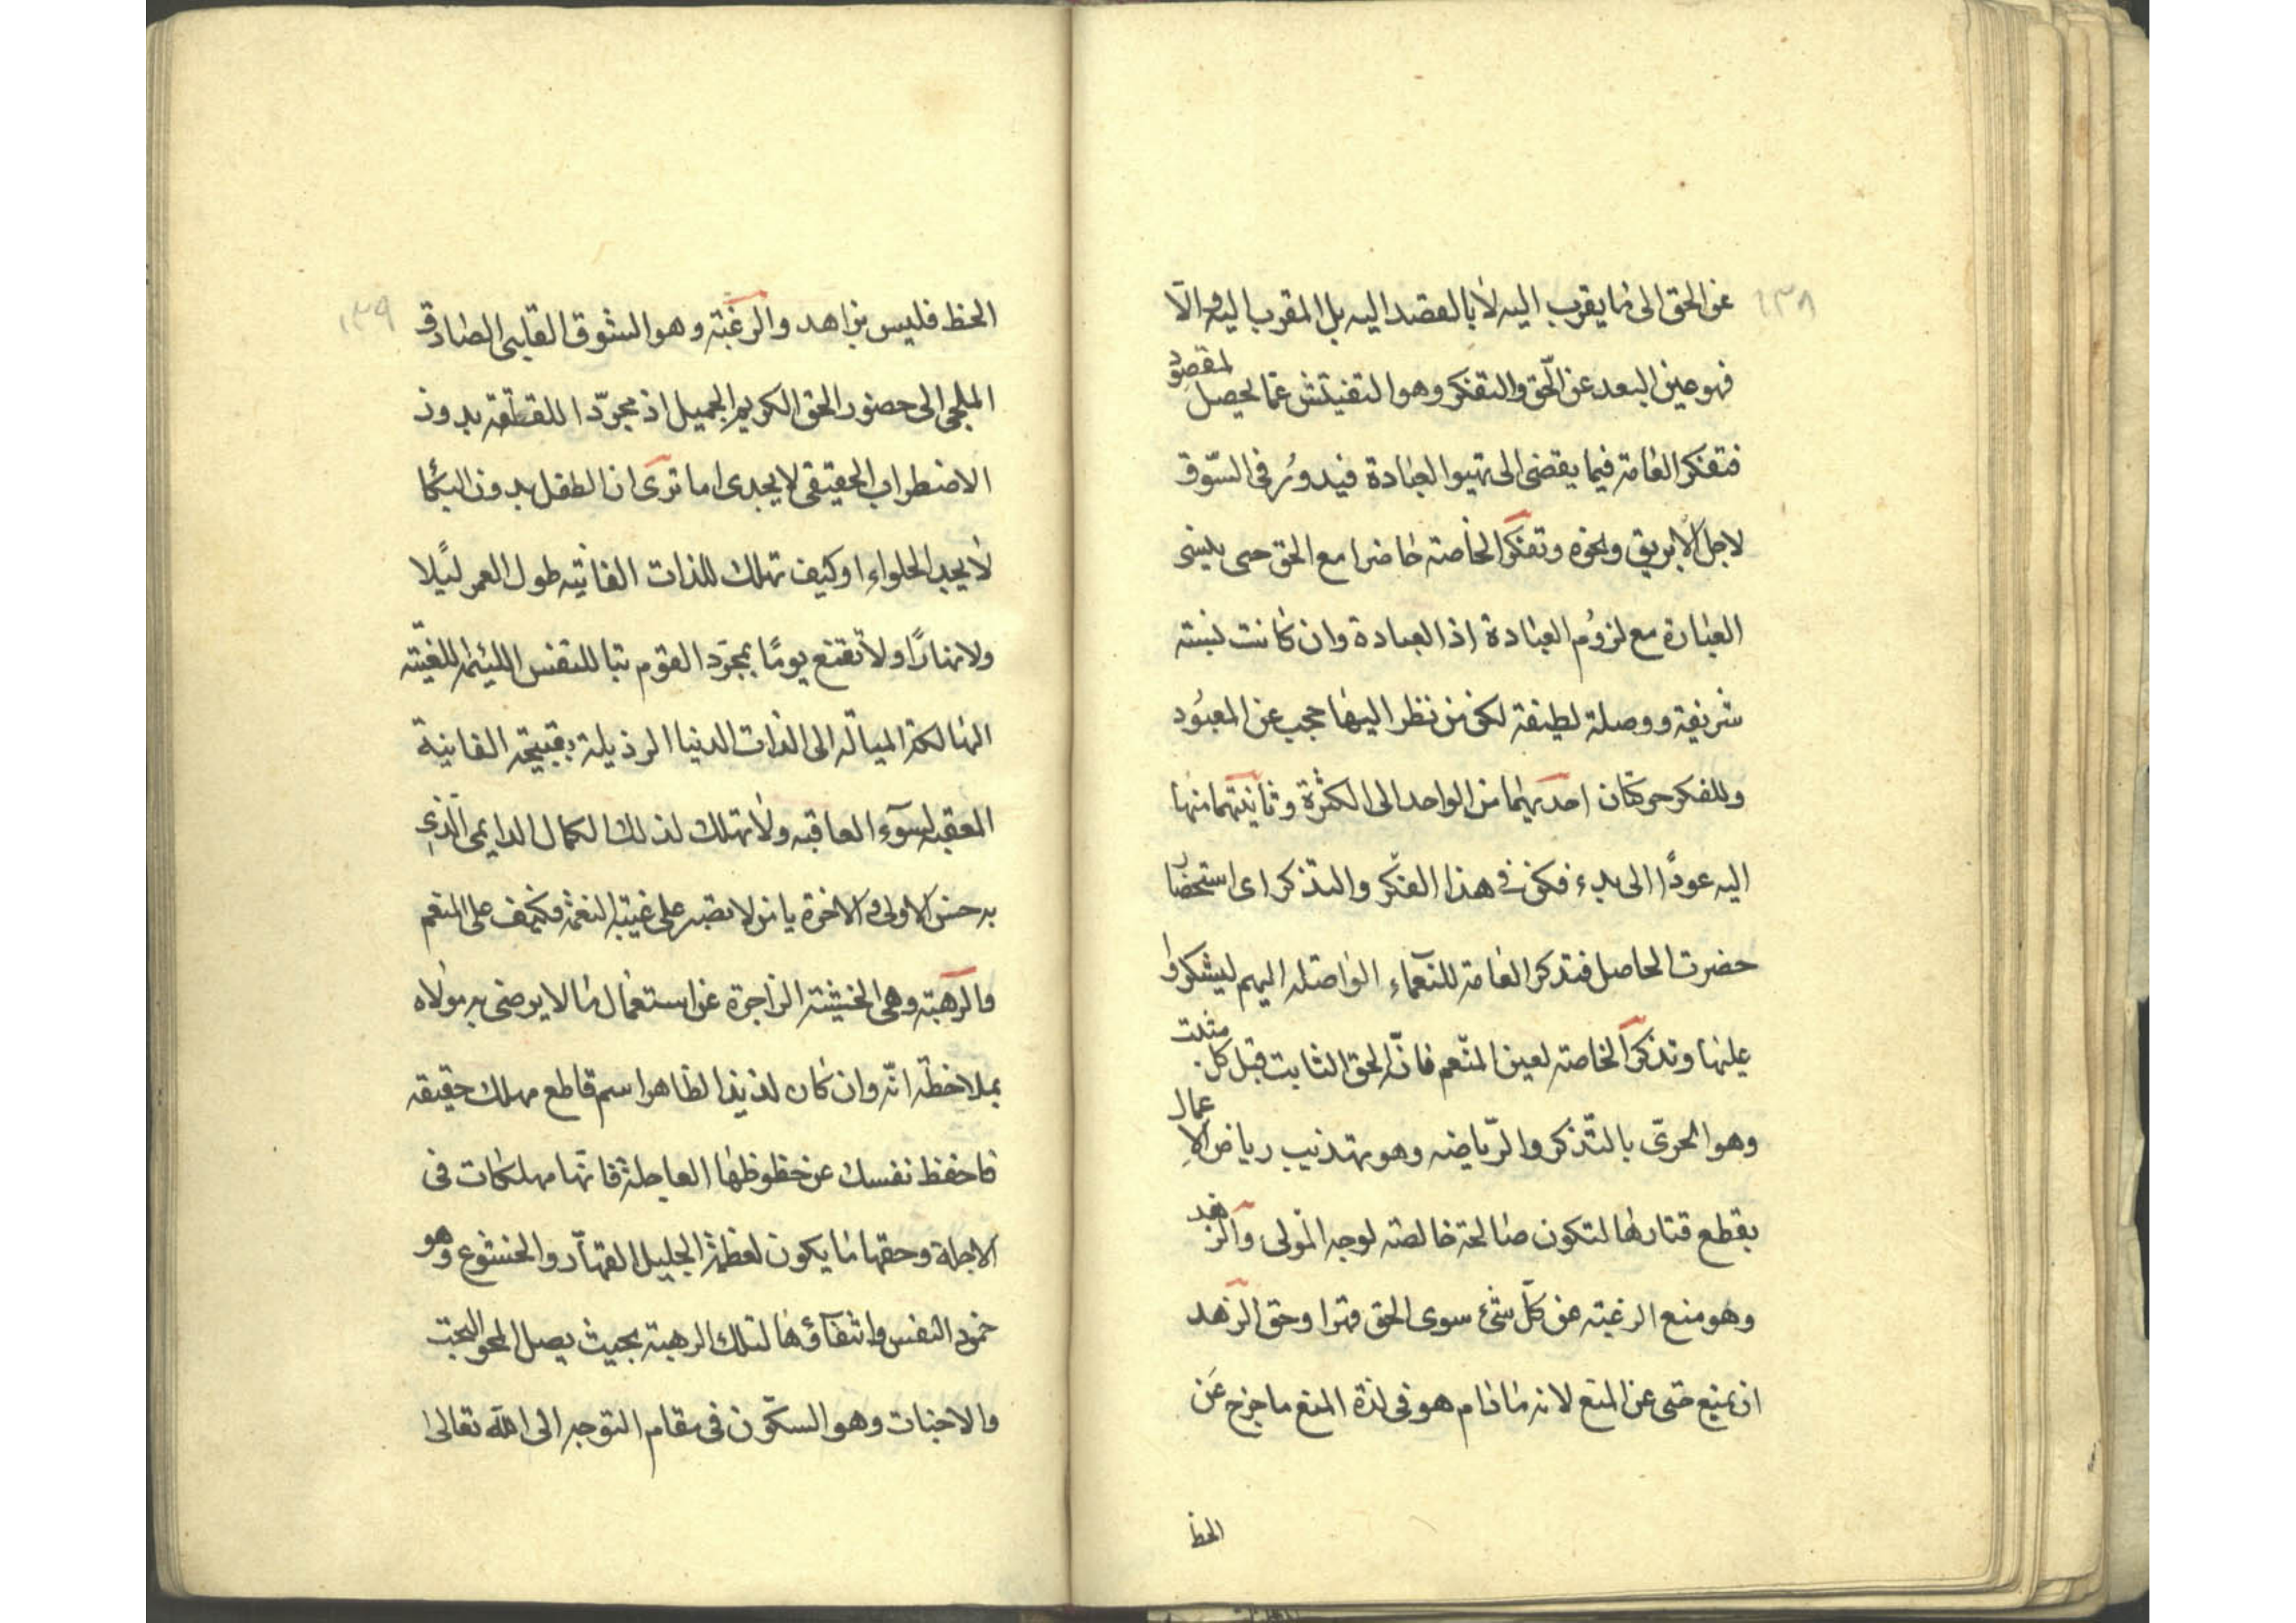 ١٣٨
عن الحق الى ما يقرب اليه لا بالقصد اليه بل المقرب اليه والا
فهو عين البعد عن الحق والتفكر وهو التفتيش عما يحصل المقصود
فتفكر العامة فيما يقضى الى تهيوا العبادة فيدور فى السوق
لاجل الابريق ونحوه وتفكر الخاصة حاضرا مع الحق حتى ينسى
العبارة مع لزوم العبادة اذ العبادة وان كانت نسبته
شريفة ووصلة لطيفة لكن من نظر اليها حجب عن المعبود
وللفكر حركتان احديهما من الواحد الى الكثرة وثانيتهما منها
اليه عودا الى بدء فكن فى هذا الفكر والتذكر اى استحضار
حضرت الحاصل فتذكر العامة للنعماء الواصله اليهم ليشكروا
عليها وتذكر الخاصة لعين المنعم فانه الحق الثابت قبل كل مثبت
وهو الحرى بالتذكر والرياضه وهو تهذيب رياض الاعمال
بقطع قتارها لتكون صالحة خالصة لوجه المولى والزهد
وهو منع الرغبته عن كل شئ سوى الحق قهرا وحق الزهد
ان يمنع حتى عن المنع لانه ما دام هو فى لذة المنع ما خرج عن
الحظ
١٣٩
الحظ فليس بزاهد والرغبة وهو الشوق القلبى الصادق
الملجى الى حضور الحق الكريم الجميل اذ مجرد اللقلقة بدون
الاضطراب الحقيقى لا يجدى اما ترى ان الطفل بدون البكا
لا يجد الحلواء او كيف تهلك للذات الفانيه طول العمر ليلا
ولا نهارا ولا تقنع يوما بمجرد القوم تبا للنفس اللئيمة للغيته
الهالكة الميالة الى الذات الدنيا الرذيلة بقبيحة الفانية
العقبه لسوء العاقبه ولا تهلك لذلك الكمال الدايمى الذى
به حسن الاولى والاخرة يا من لا يصبر على غيبة النعمة فكيف على المنعم
والرهبة وهى الخشيته الزاجرة عن استعمال ما لا يرضى به مولاه
بملاحظة انه وان كان لذيذا لظاهرا سم قاطع مهلك حقيقه
فاحفظ نفسك عن حظوظها العاجلة فانها مهلكات فى
الاجلة وحقها ما يكون لعظمة الجليل القهار والخشوع وهو
خمود النفس وانتفاؤها لتلك الرهبة بحيث يصل المحو البحت
والاخبات وهو السكون فى مقام التوجه الى الله تعالى